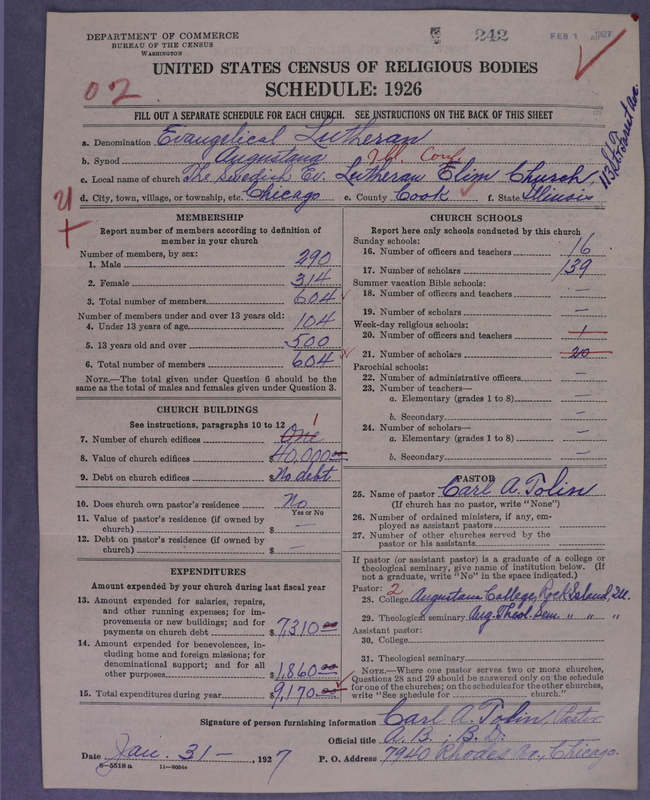 DEPARTMENT OF COMMERCE
BUREAU OF THE CENSUS
WASHINGTON
242
FEB 1 1927
UNITED STATES CENSUS OF RELIGIOUS BODIES
SCHEDULE: 1926
02
FILL OUT A SEPARATE SCHEDULE FOR EACH CHURCH. SEE INSTRUCTIONS ON THE BACK OF THIS SHEET
a. Denomination Evangelical Lutheran
b. Synod Augustana Ill. Conf.
c. Local name of church The Swedish Ev. Lutheran Elim Church,
d. City, town, village, or township, etc. Chicago e. County Cook f. State Illinois
113th St. Forest Av.
21
MEMBERSHIP
Report number of members according to definition of
member in your church
Number of members, by sex:
1. Male 290
2. Female 314
3. Total number of members 604
Number of members under and over 13 years old:
4. Under 13 years of age 104
5. 13 years old and over 500
6. Total number of members 604
NOTE.—The total given under Question 6 should be the
same as the total of males and females given under Question 3.
CHURCH BUILDINGS
See instructions, paragraphs 10 to 12 1
7. Number of church edifices One
8. Value of church edifices $40,000
9. Debt on church edifices $ No debt
10. Does church own pastor's residence No
Yes or No
11. Value of pastor's residence (if owned by
church) $ —
12. Debt on pastor's residence (if owned by
church) $ —
EXPENDITURES
Amount expended by your church during last fiscal year
13. Amount expended for salaries, repairs,
and other running expenses; for im-
provements or new buildings; and for
payments on church debt $7310 00
14. Amount expended for benevolences, in-
cluding home and foreign missions; for
denominational support; and for all
other purposes $1,860 00
15. Total expenditures during year $9,170.00
CHURCH SCHOOLS
Report here only schools conducted by this church
Sunday schools:
16. Number of officers and teachers 16
17. Number of scholars 139
Summer vacation Bible schools:
18. Number of officers and teachers —
19. Number of scholars —
Week-day religious schools:
20. Number of officers and teachers 1
21. Number of scholars 20
Parochial schools:
22. Number of administrative officers —
23. Number of teachers—
a. Elementary (grades 1 to 8) —
b. Secondary —
24. Number of scholars—
a. Elementary (grades 1 to 8) —
b. Secondary —
PASTOR
25. Name of pastor Carl A. Tolin
(If church has no pastor, write "None")
26. Number of ordained ministers, if any, em-
ployed as assistant pastors
27. Number of other churches served by the
pastor or his assistants
If pastor (or assistant pastor) is a graduate of a college or
theological seminary, give name of institution below. (If
not a graduate, write "No" in the space indicated.)
Pastor: 2
28. College Augustana College, Rock Island, Ill.
29. Theological seminary Aug. Theol. Sem. " " "
Assistant pastor:
30. College
31. Theological seminary
NOTE.—Where one pastor serves two or more churches,
Questions 28 and 29 should be answered only on the schedule
for one of the churches; on the schedules for the other churches,
write "See schedule for church."
Signature of person furnishing information Carl A. Tolin, Pastor
Official title A.B., B.D.
Date Jan. 31 — , 1927 P. O. Address 7940 Rhodes Av., Chicago.
8—5518 a 11—9054a